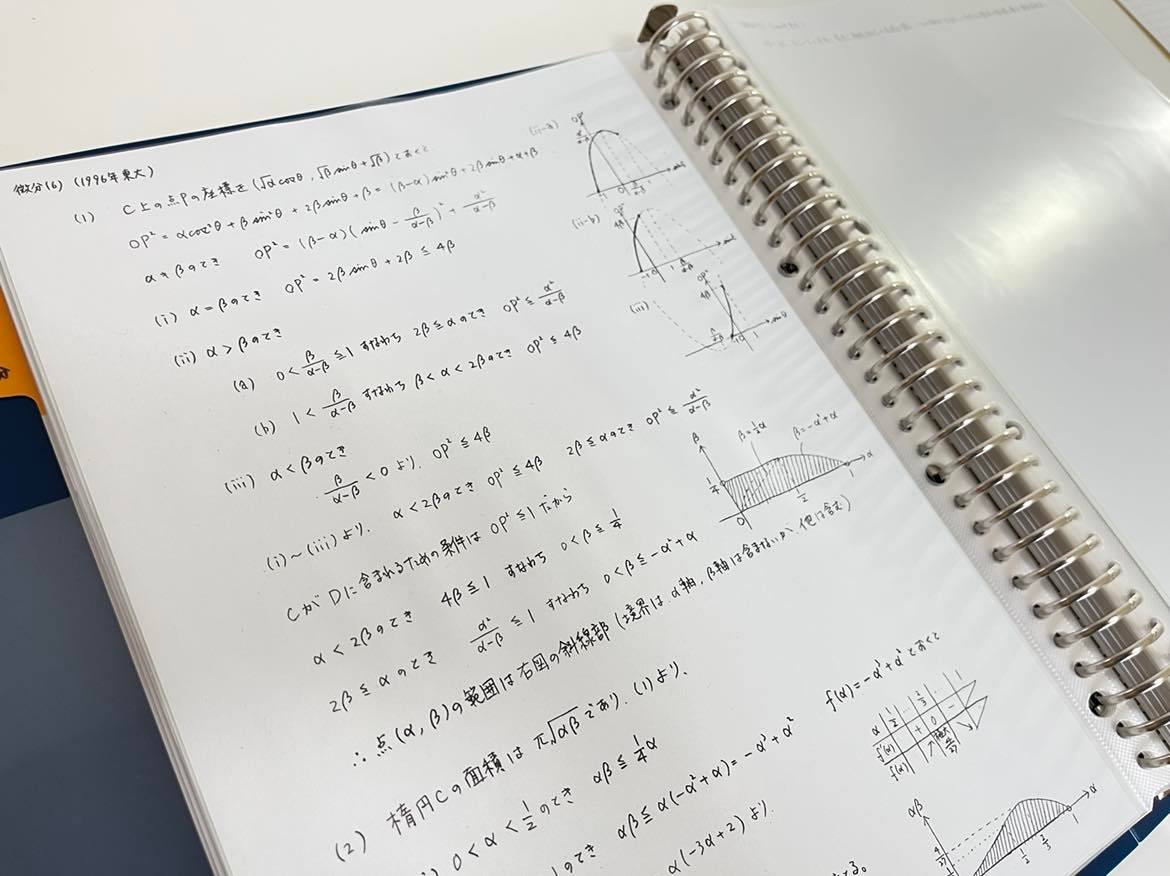 微分(6) (1996年東大)
(1) C上の点Pの座標を (√α cosθ, √β sinθ + √β) とおくと
OP² = α cos²θ + β sin²θ + 2β sinθ + β = (β-α) sin²θ + 2β sinθ + α + β
α≠βのとき OP² = (β-α)(sinθ - β/(α-β))² + α²/(α-β)
(i) α = βのとき OP² = 2β sinθ + 2β ≦ 4β
(ii) α > βのとき
(a) 0 < β/(α-β) ≦ 1 すなわち 2β ≦ αのとき OP² ≦ α²/(α-β)
(b) 1 < β/(α-β) すなわち β < α < 2βのとき OP² ≦ 4β
(iii) α < βのとき
β/(α-β) < 0 より, OP² ≦ 4β
(i)~(iii)より, α < 2βのとき OP² ≦ 4β 2β ≦ αのとき OP² ≦ α²/(α-β)
CがDに含まれるための条件は OP² ≦ 1 だから
α < 2βのとき 4β ≦ 1 すなわち 0 < β ≦ 1/4
2β ≦ αのとき α²/(α-β) ≦ 1 すなわち 0 < β ≦ -α² + α
∴ 点(α, β)の範囲は右図の斜線部 (境界は, α軸, β軸は含まないが, 他は含む)
(2) 楕円Cの面積は π√αβ であり, (1)より,
0 < α < 1/2 のとき αβ ≦ 1/4 α
1のとき αβ ≦ α(-α² + α) = -α³ + α²
α(-3α + 2) より,
(ii-a)
OP²
-1 0
(ii-b)
OP²
4β
-1 0 1 β/(α-β)
(iii)
OP²
4β
β/(α-β) -1 0 1 sinθ
β
β = 1/2 α
β = -α² + α
1/4
0 1/2 1 α
f(α) = -α³ + α² とおくと
α 1/2 … 2/3 … 1
f'(α) + 0 -
f(α) ↗ 極大 4/27 ↘
αβ
4/27
1/2 2/3 1 α